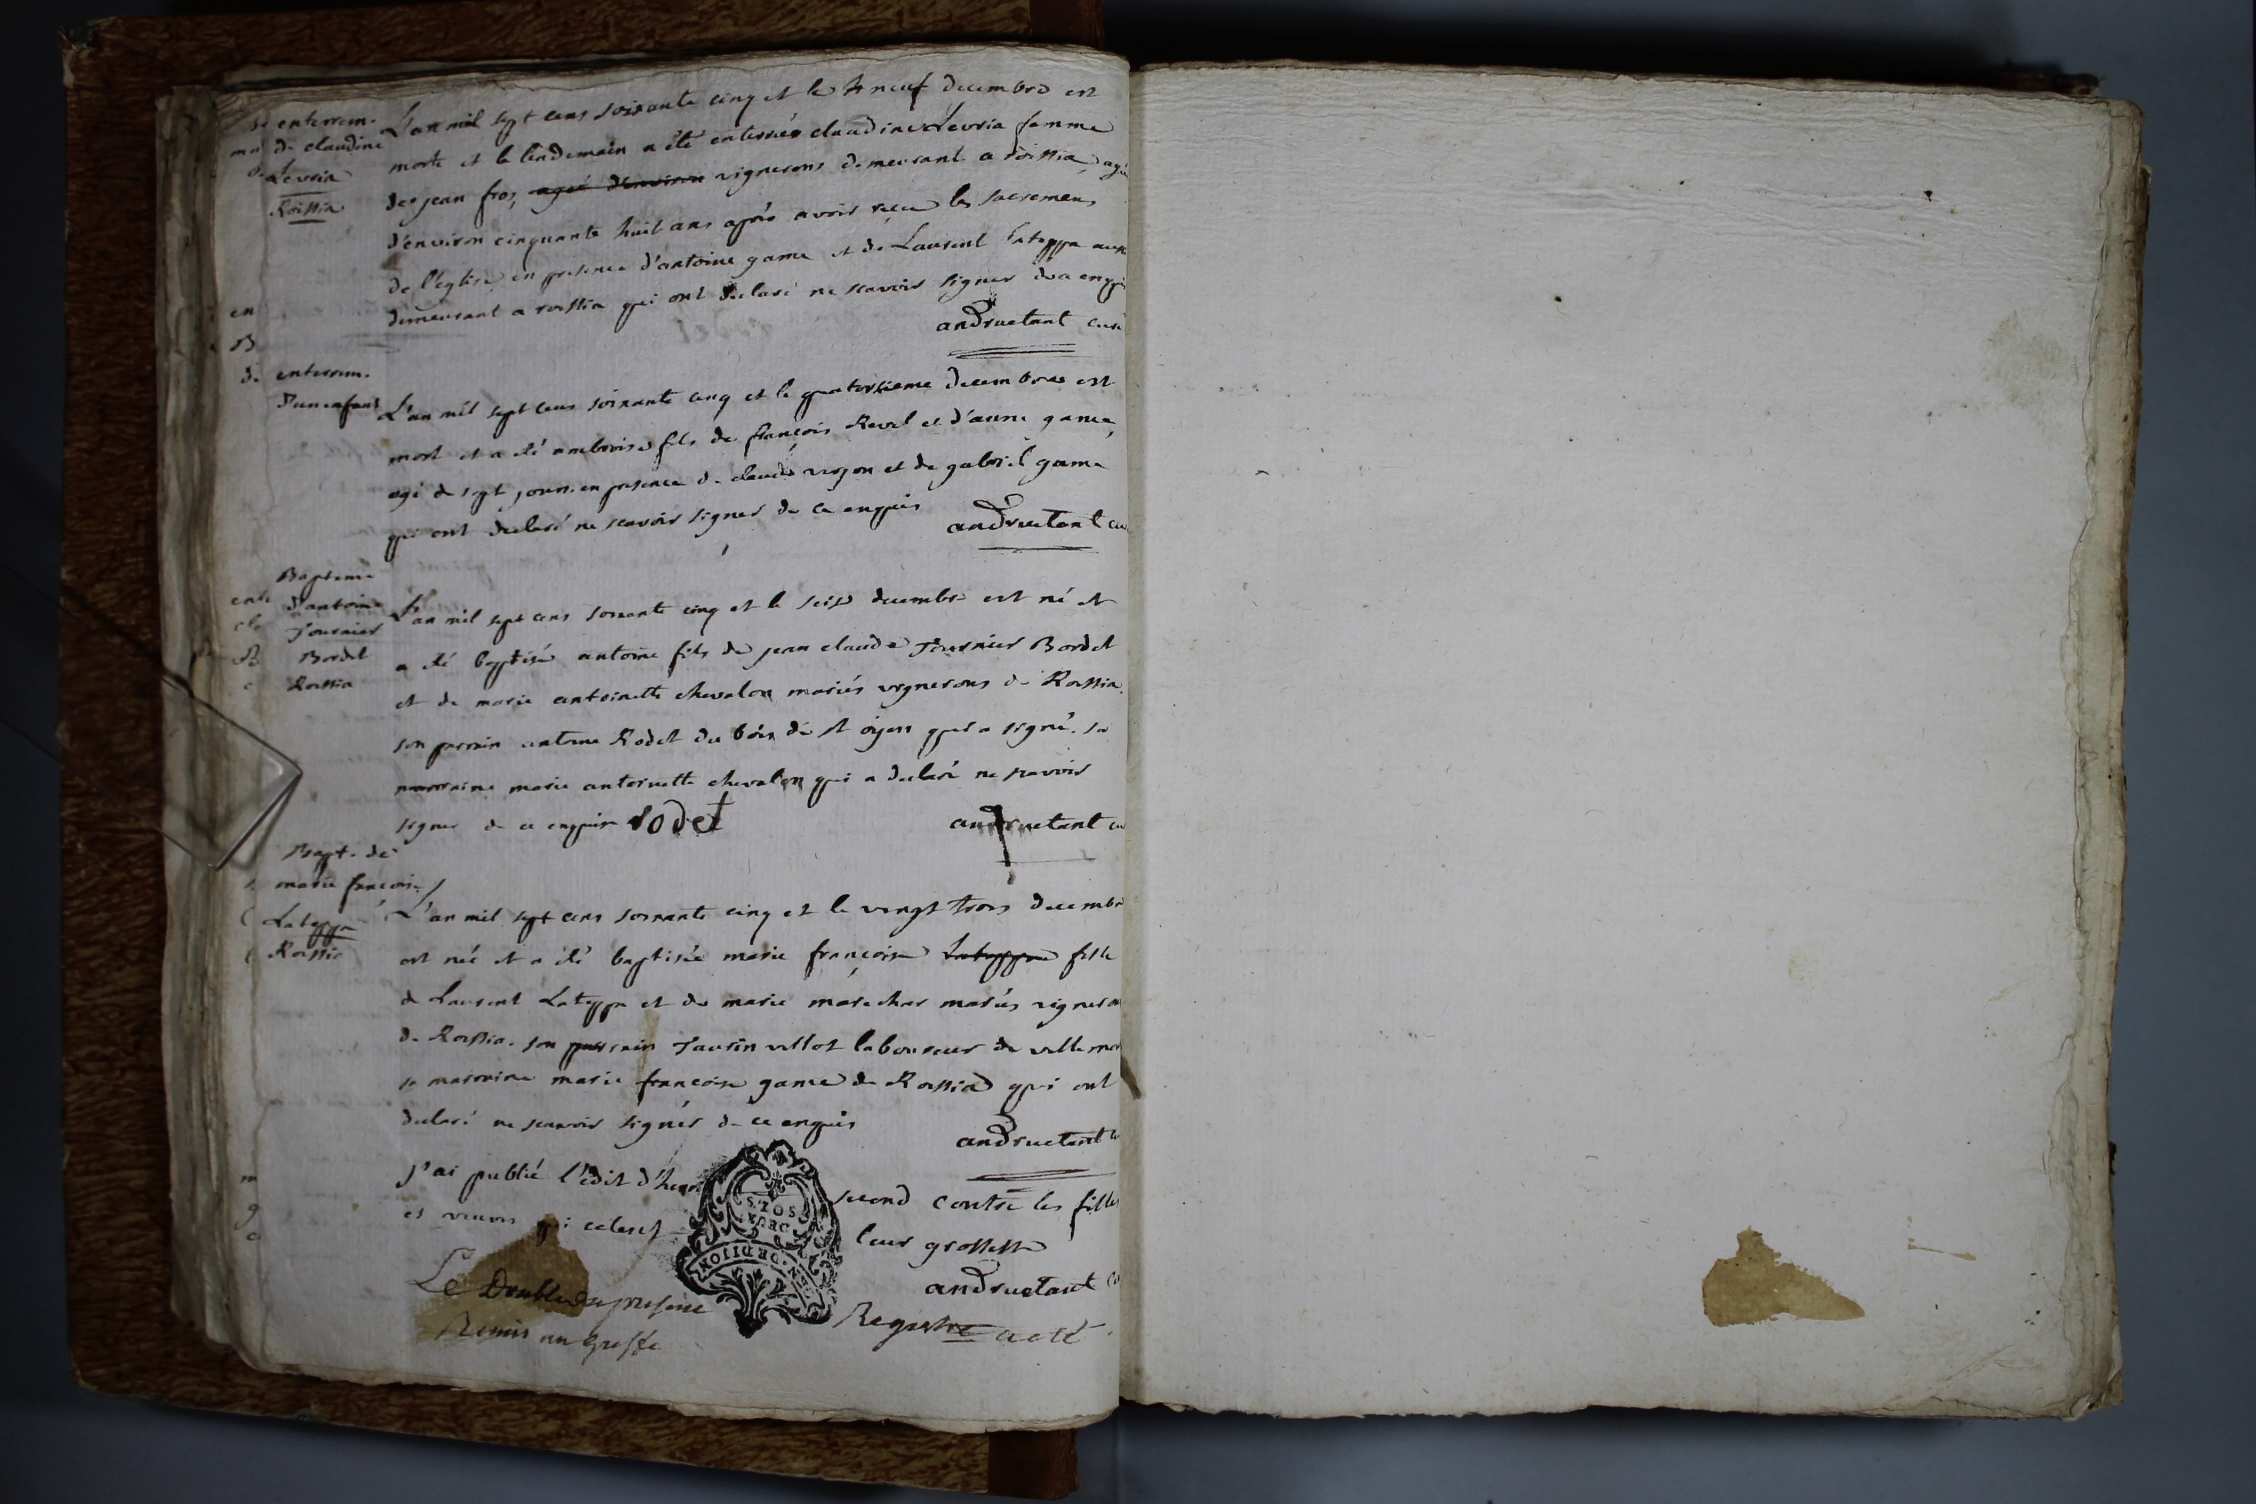 enterrem.
de claudine
Levria
Roissia
L'an mil sept cens soixante cinq et le neuf decembre est
morte et le lendemain a été enterrée claudine Levria femme
de jean fros, agée d'environ vignerons demeurant a roissia, agée
d'environ cinquante huit ans après avoir reçu les sacremens
de l'église, en presence d'antoine game et de Laurent Lateppa
demeurant a roissia qui ont declaré ne scavoir signer de ce enquis
andruetant curé
enterrem.
d'un enfant
L'an mil sept cens soixante cinq et le quatorsieme decembre est
mort et a été ambroise fils de françois Revel et d'anne game,
agé de sept jours. en presence de claude vuyon et de gabriel game
qui ont declaré ne scavoir signer de ce enquis
andruetant cu
Bapteme
d'antoine
Fournier
Bordet
Roissia
L'an mil sept cens soixante cinq et le seise decembre est né et
a été baptisé antoine fils de jean claude Fournier Bordet
et de marie antoinette chevalon mariés vignerons de Roissia.
son parrain antoine Rodet du bois de st oyen qui a signé. sa
marraine marie antoinette chevalon qui a declaré ne scavoir
signer de ce enquis rodet
andruetant cu
Bapt. de
marie françoise
Lateppa
Roissia
L'an mil sept cens soixante cinq et le vingt trois decembre
est née et a été baptisée marie françoise Lateppa fille
de Laurent Lateppa et de marie marechar mariés vignerons
de Roissia. son parrain Faurin villot laboureur de
sa marraine marie françoise game de Roissia qui ont
declaré ne scavoir signer de ce enquis
andruetant
j'ai publié l'édit d'henri second contre les filles
et veuves qui celent leur grossesse
andruetant cu
Le Double du presene Registre a eté
Remis au Greffe